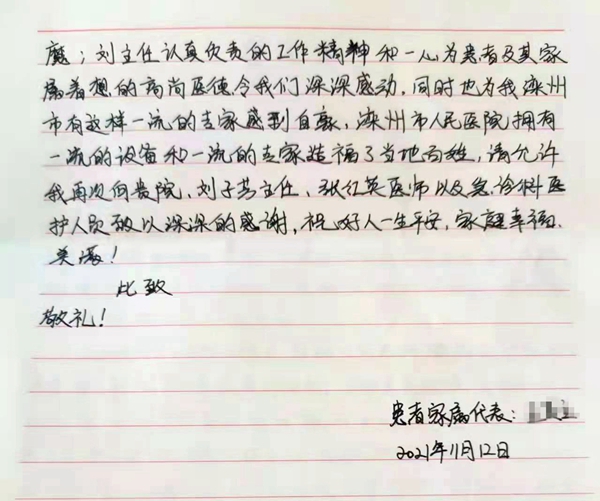 魔；刘主任认真负责的工作精神和一心为患者及其家
属着想的高尚医德令我们深深感动，同时也为我滦州
市有这样一流的专家感到自豪，滦州市人民医院拥有
一流的设备和一流的专家造福了当地百姓，请允许
我再次向贵院，刘子英主任，张红英医师以及急诊科医
护人员致以深深的感谢，祝好人一生平安，家庭幸福
美满！
此致
敬礼！
患者家属代表：
2021年11月12日